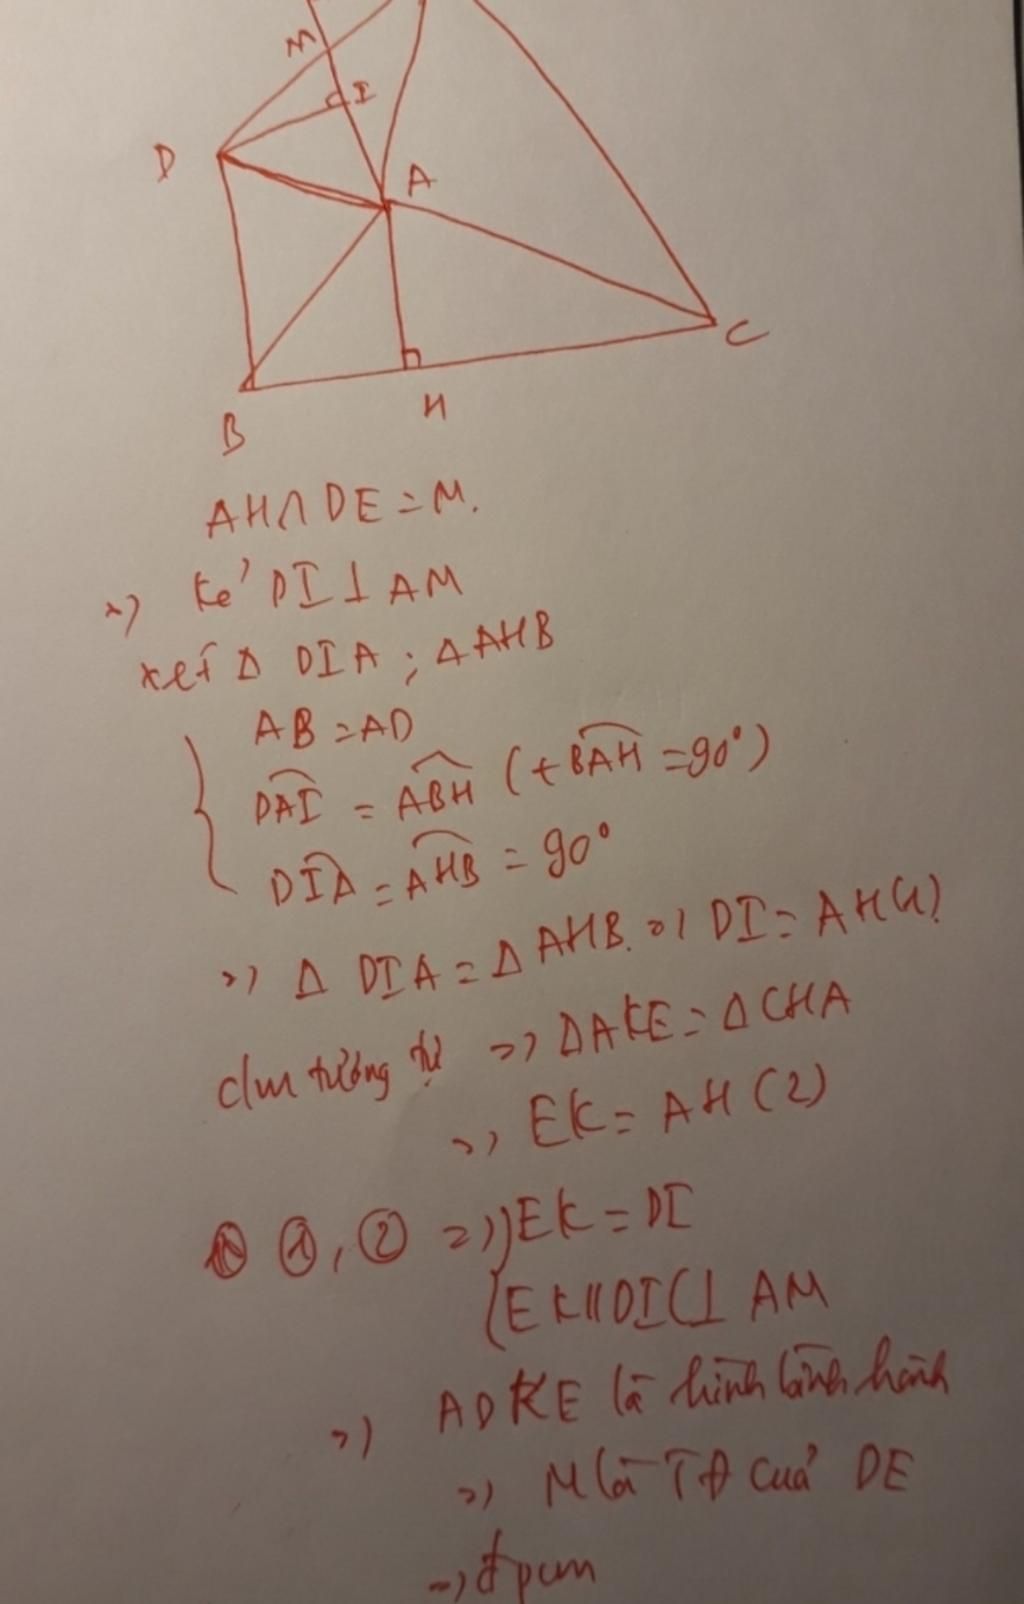 M
I
D
A
C
H
B
AH∩DE=M.
Kẻ DI⊥AM
xét Δ DIA ; ΔAHB
AB=AD
DAI = ABH (+BAH=90°)
DIA=AHB=90°
=) Δ DIA=Δ AHB. =) DI=AH(1)
c/m tương tự =) ΔAKE=ΔCHA
=) EK=AH(2)
①, ② =) EK=DI
EK//DI(⊥ AM
=) ADKE là hình bình hành
=) M là TĐ của DE
=) đpcm